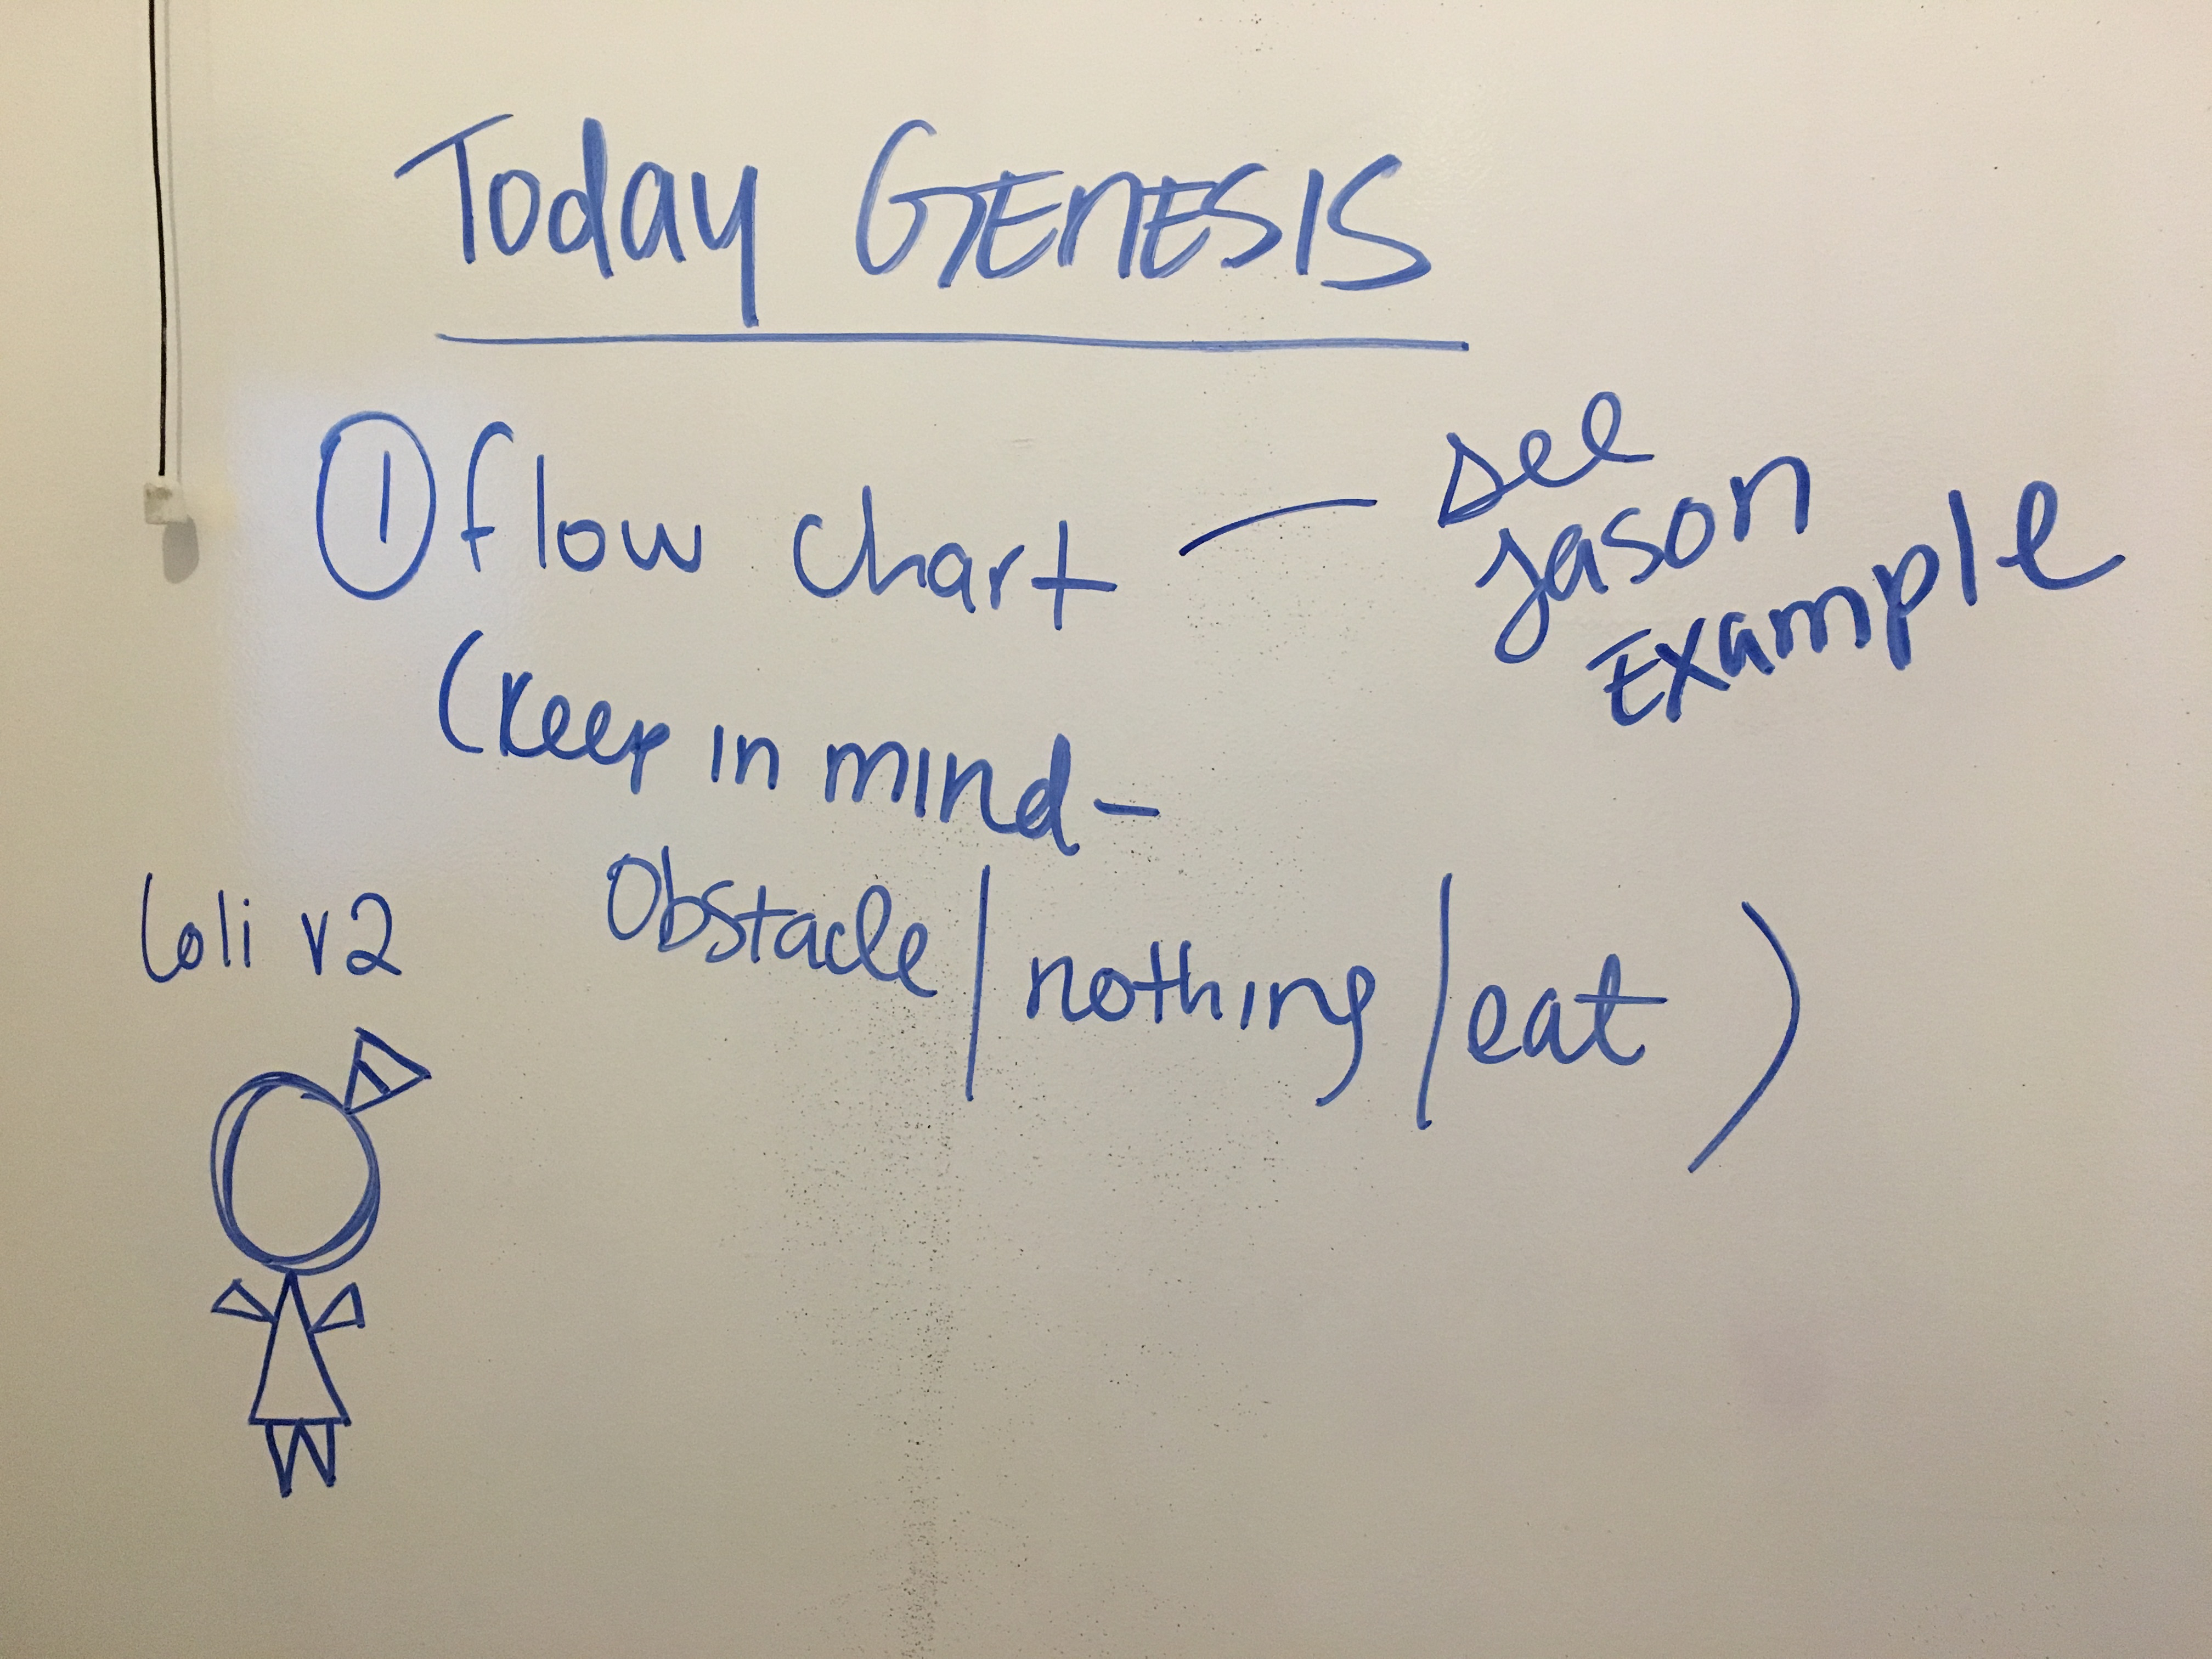 Today GENESIS
① flow chart — see
Jason
Example
(Keep in mind—
Obstacle/nothing/eat)
loli v2